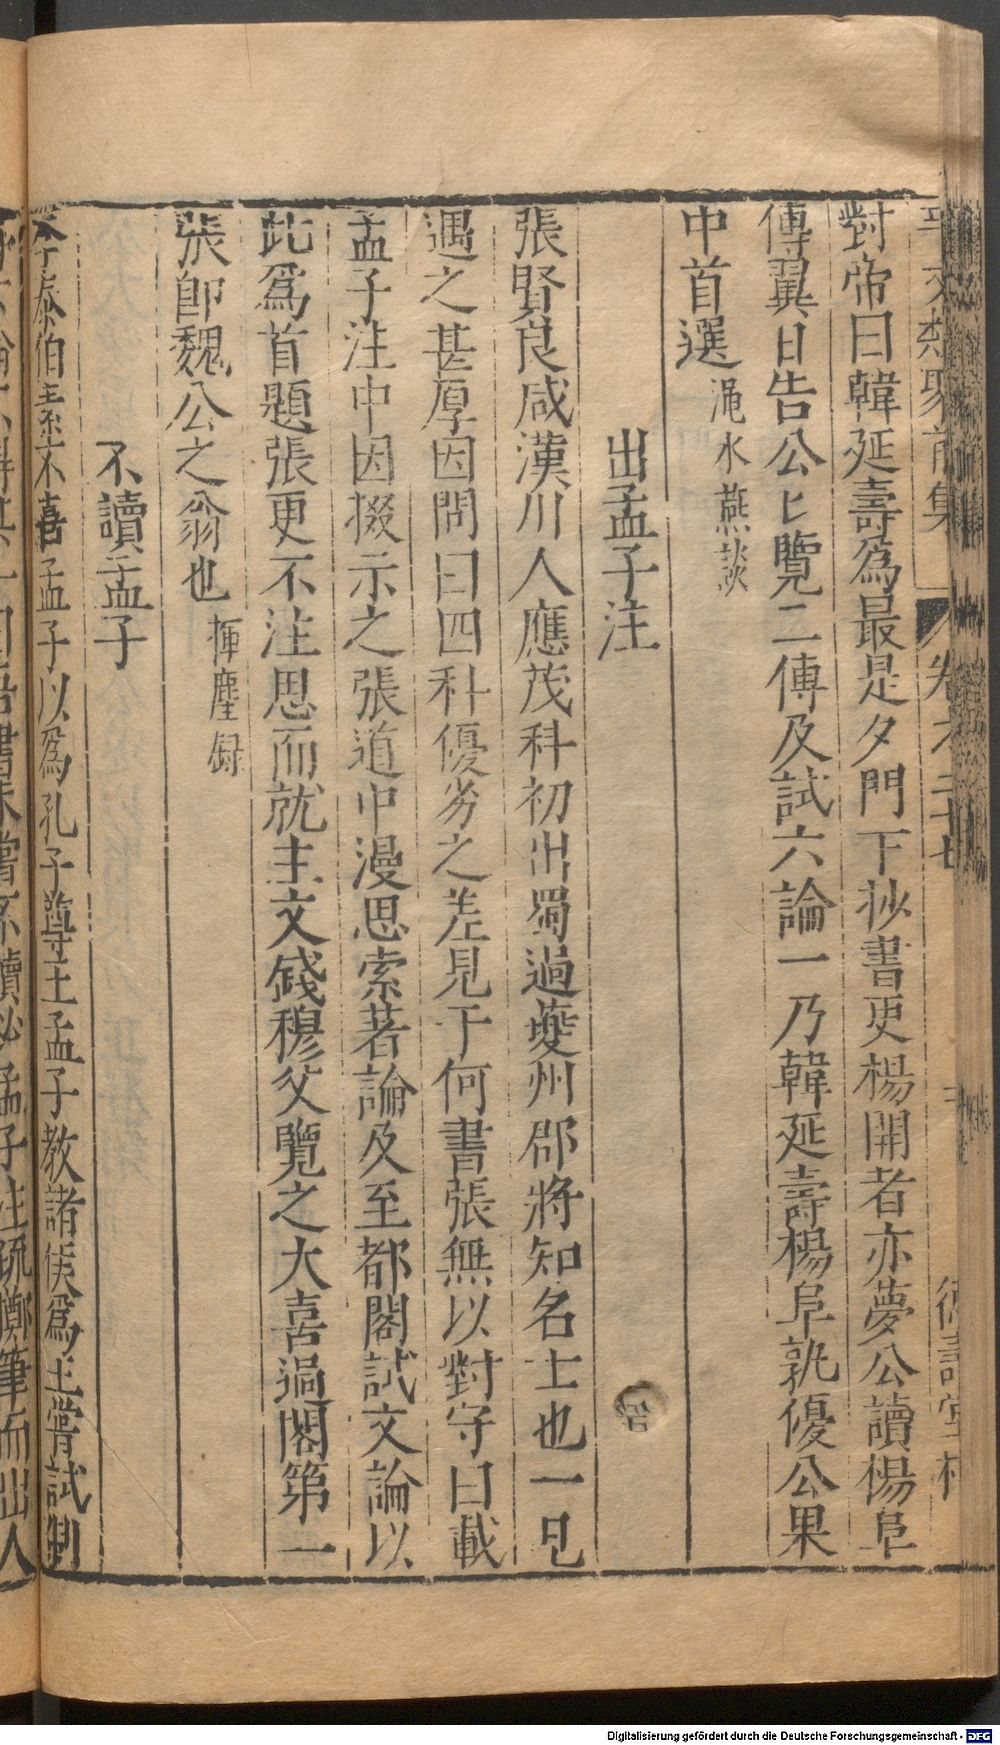 事文類聚前集 卷之二十七 德壽堂梓
對帝曰韓延壽爲最是夕門下抄書吏楊開者亦夢公讀楊阜
傳翼日告公匕覽二傳及試六論一乃韓延壽楊阜孰優公果
中首選 澠水燕談
出孟子注
張賢良咸漢川人應茂科初出蜀過夔州郡將知名士也一見
遇之甚厚因問曰四科優劣之差見于何書張無以對守曰載
孟子注中因掇示之張道中漫思索著論及至都閣試文論以
此爲首題張更不注思而就主文錢穆父覽之大喜過閣第一
張卽魏公之翁也 揮塵録
不讀孟子
李泰伯素不喜孟子以爲孔子尊王孟子教諸侯爲王嘗試制
書未嘗不讀必孟子注疏擲筆而出人
Digitalisierung gefördert durch die Deutsche Forschungsgemeinschaft - DFG